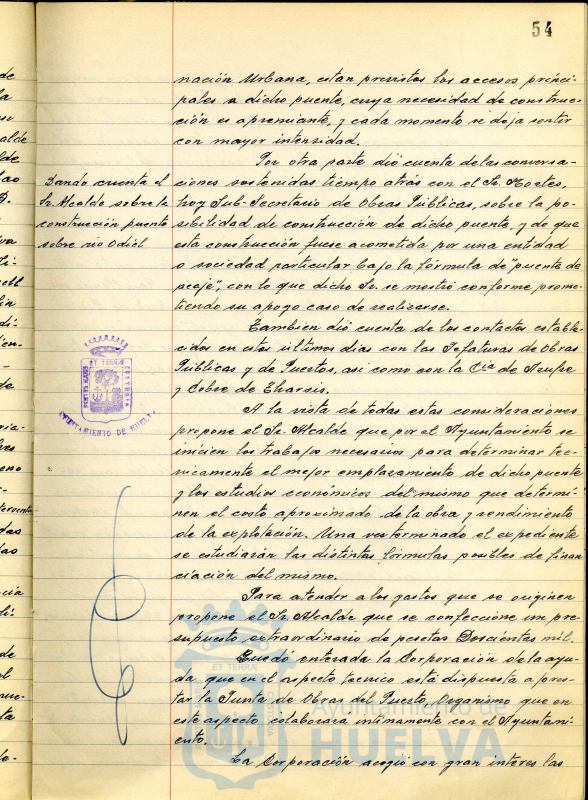 54
nación Urbana, estan previstos los accesos princi-
pales a dicho puente, cuya necesidad de construc-
ción es apremiante, y cada momento se deja sentir
con mayor intensidad.
Por otra parte dió cuenta de las conversa-
Dando cuenta el
Sr. Alcalde sobre la
construcción puente
sobre rio Odiel
ciones sostenidas tiempo atrás con el Sr. Cortes,
hoy Sub-Secretario de Obras Públicas, sobre la po-
sibilidad de construcción de dicho puente, y de que
esta construcción fuese acometida por una entidad
o sociedad particular bajo la fórmula de "puente de
peaje", con lo que dicho Sr. se mostró conforme prome-
tiendo su apoyo caso de realizarse.
Tambien dió cuenta de los contactos estable-
cidos en estos últimos dias con las Jefaturas de Obras
Públicas y de Puertos, así como con la Cia de Azufre
y Cobre de Tharsis.
A la vista de todas estas consideraciones
propone el Sr. Alcalde que por el Ayuntamiento se
inicien los trabajos necesarios para determinar tec-
nicamente el mejor emplazamiento de dicho puente
y los estudios económicos del mismo que determi-
nen el costo aproximado de la obra y rendimiento
de la explotación. Una vez terminado el expediente
se estudiarán las distintas fórmulas posibles de finan-
ciación del mismo.
Para atender a los gastos que se originen
propone el Sr. Alcalde que se confeccione un pre-
supuesto extraordinario de pesetas Doscientas mil.
Quedó enterada la Corporación de la ayu-
da que en el aspecto tecnico está dispuesta a pres-
tar la Junta de Obras del Puerto, Organismo que en
este aspecto colaborara intimamente con el Ayuntami-
ento.
La Corporación acogió con gran interes las
AYUNTAMIENTO DE HUELVA
PORTUS MARIS ET TERRAE CUSTODIA
Ayuntamiento de
HUELVA